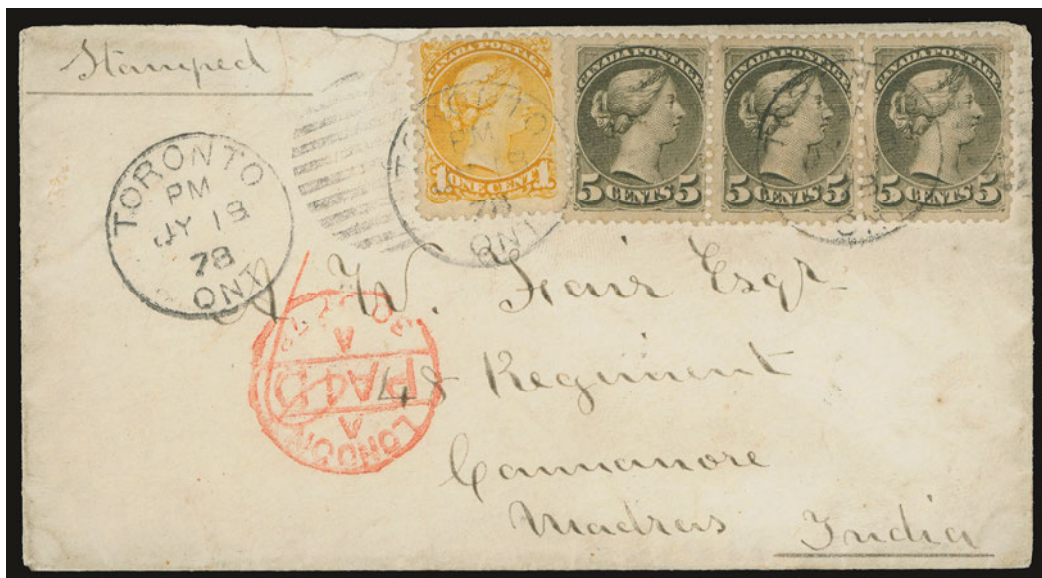 Stamped
CANADA POSTAGE
1 ONE CENT 1
CANADA POSTAGE
5 CENTS 5
CANADA POSTAGE
5 CENTS 5
CANADA POSTAGE
5 CENTS 5
TORONTO
PM
JY 18
78
ONT
TORONTO
PM
78
ONT
ONT
A W. Fair Esqr
48 Regiment
Cannanore
Madras India
LONDON
A
PAID
A